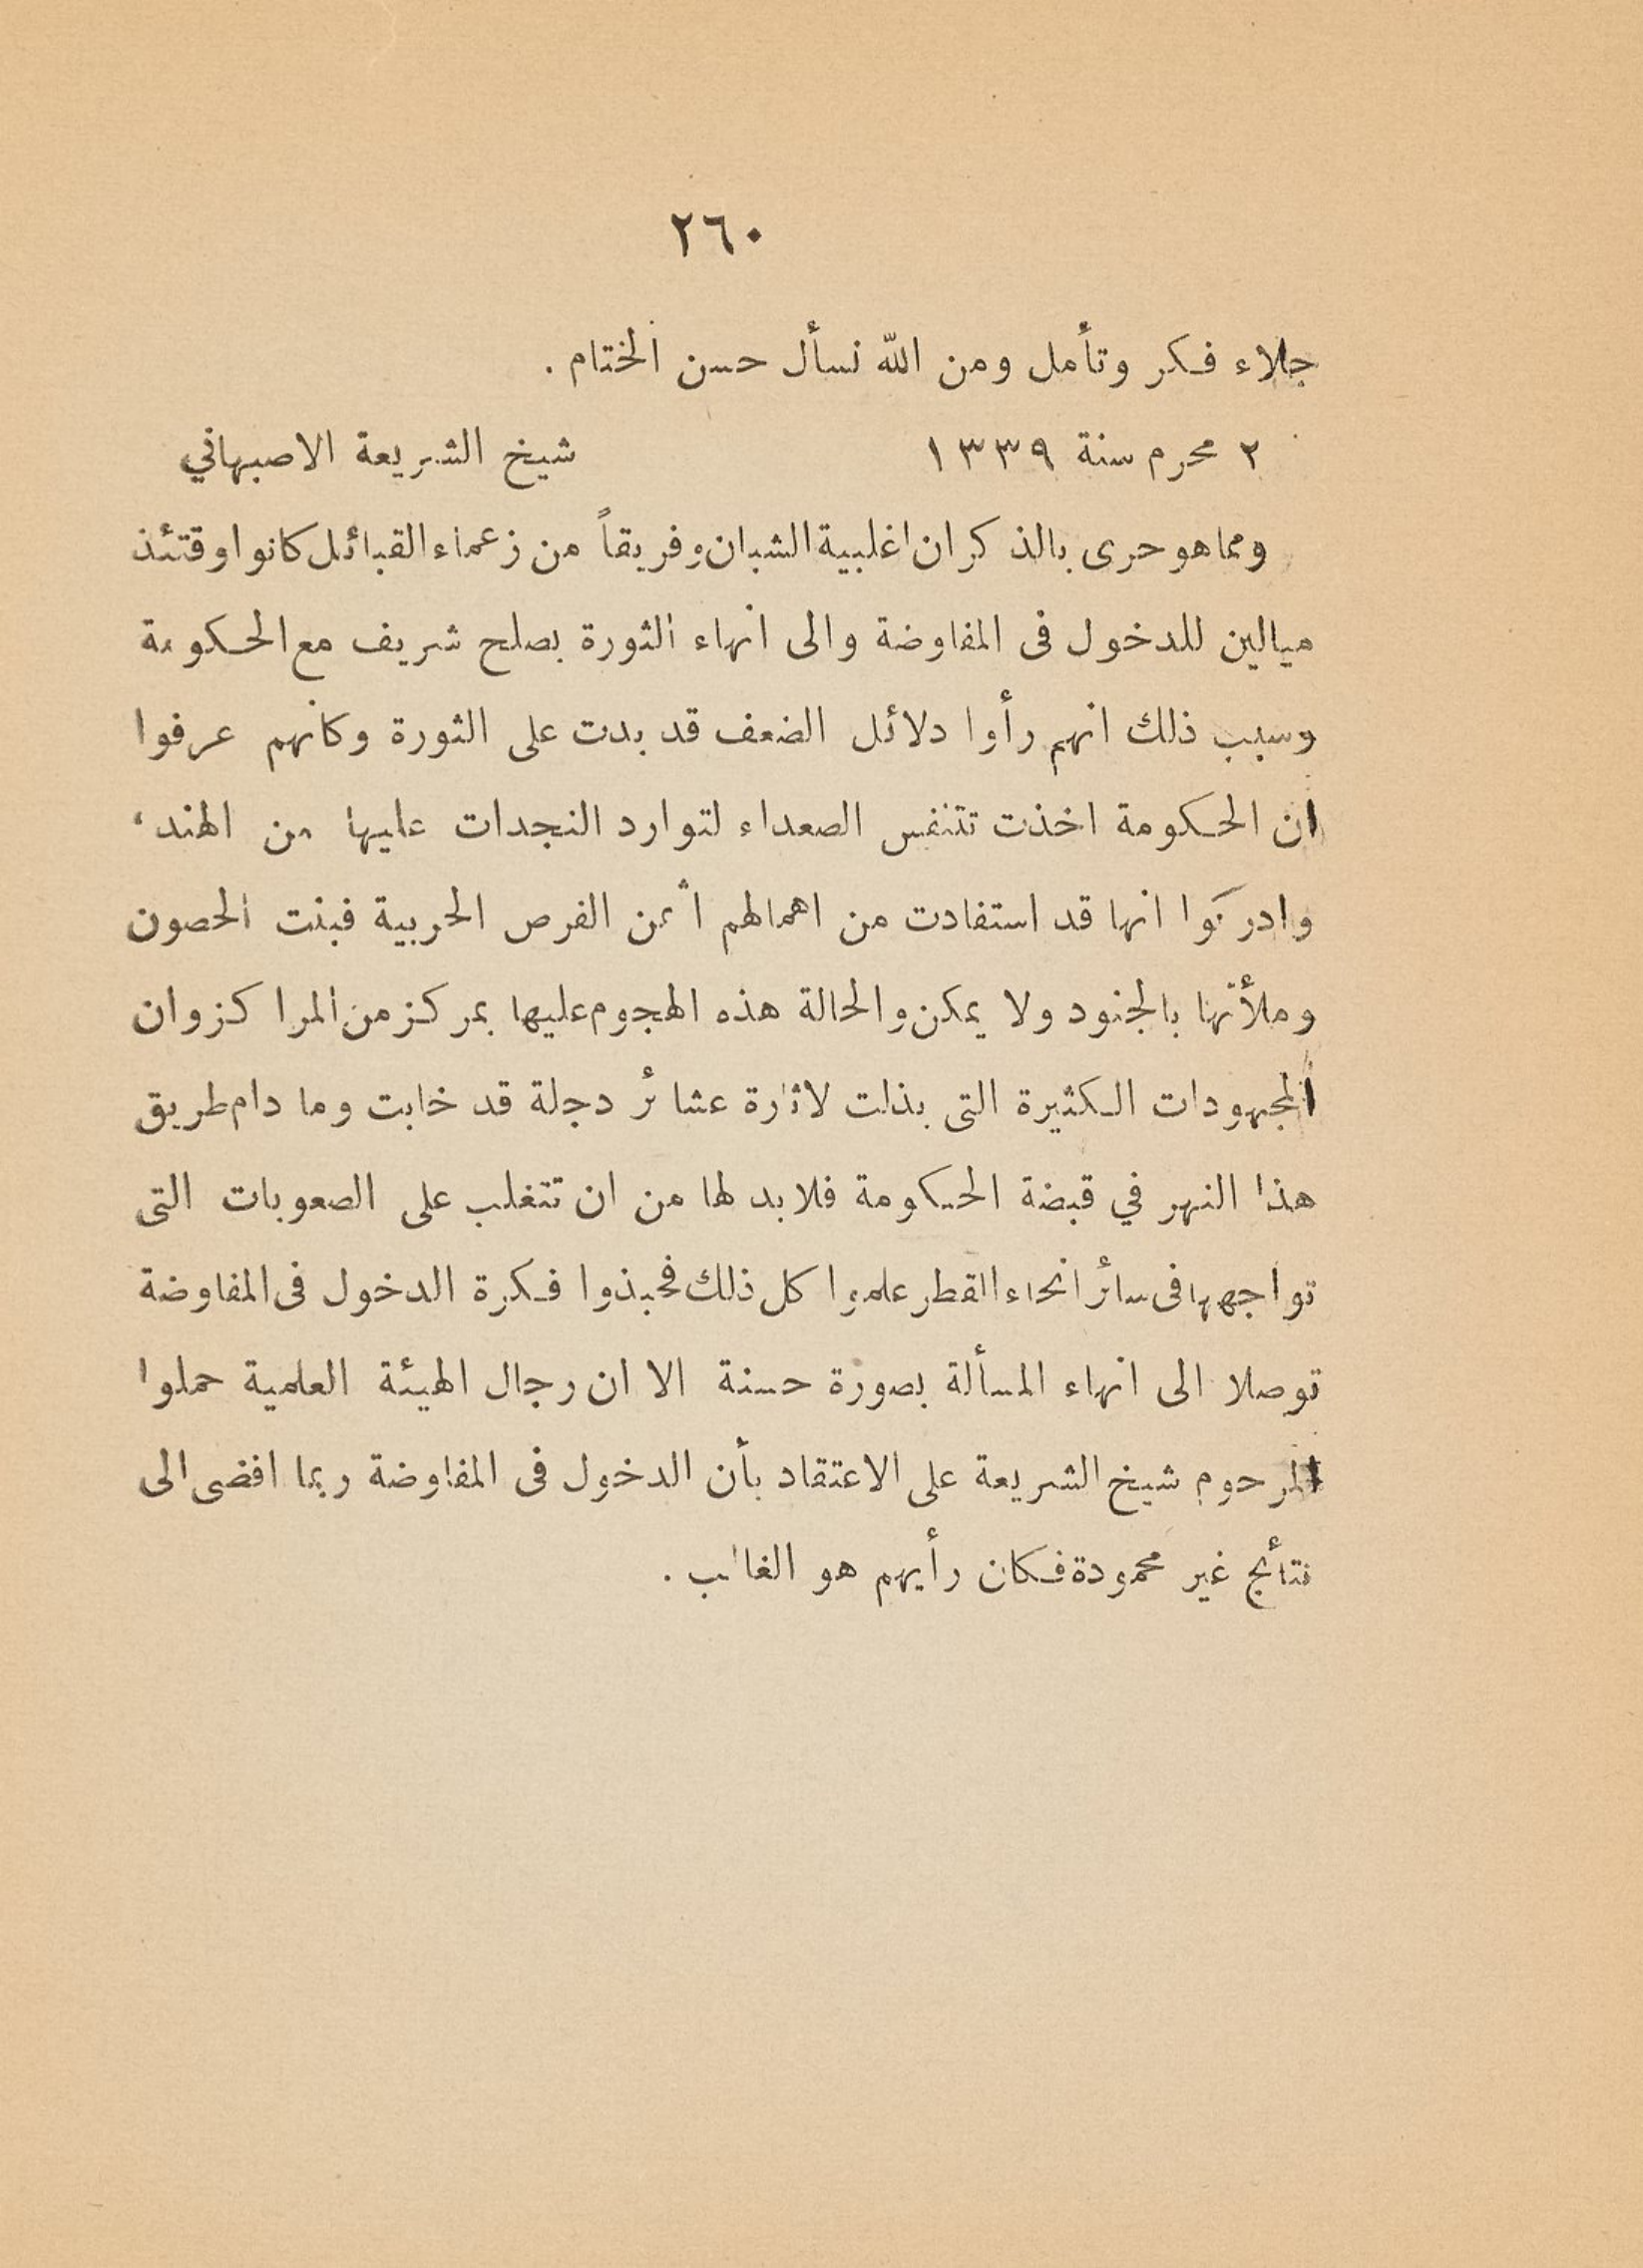 ٢٦٠
جلاء فكر وتأمل ومن الله نسأل حسن الختام .
٢ محرم سنة ١٣٣٩ شيخ الشريعة الاصبهاني
ومما هو حرى بالذكر ان اغلبية الشبان وفريقاً من زعماء القبائل كانوا وقتئذ
ميالين للدخول فى المفاوضة والى انهاء الثورة بصلح شريف مع الحكومة
وسبب ذلك انهم رأوا دلائل الضعف قد بدت على الثورة وكأنهم عرفوا
ان الحكومة اخذت تتنفس الصعداء لتوارد النجدات عليها من الهند ،
وادركوا انها قد استفادت من اهمالهم اثمن الفرص الحربية فبنت الحصون
وملأتها بالجنود ولا يمكن والحالة هذه الهجوم عليها بمركز من المراكز وان
المجهودات الكثيرة التى بذلت لاثارة عشائر دجلة قد خابت وما دام طريق
هذا النهر في قبضة الحكومة فلا بد لها من ان تتغلب على الصعوبات التى
تواجهها فى سائر انحاء القطر علموا كل ذلك فحبذوا فكرة الدخول فى المفاوضة
توصلا الى انهاء المسألة بصورة حسنة الا ان رجال الهيئة العلمية حملوا
المرحوم شيخ الشريعة على الاعتقاد بأن الدخول فى المفاوضة ربما افضى الى
نتائج غير محمودة فكان رأيهم هو الغالب .